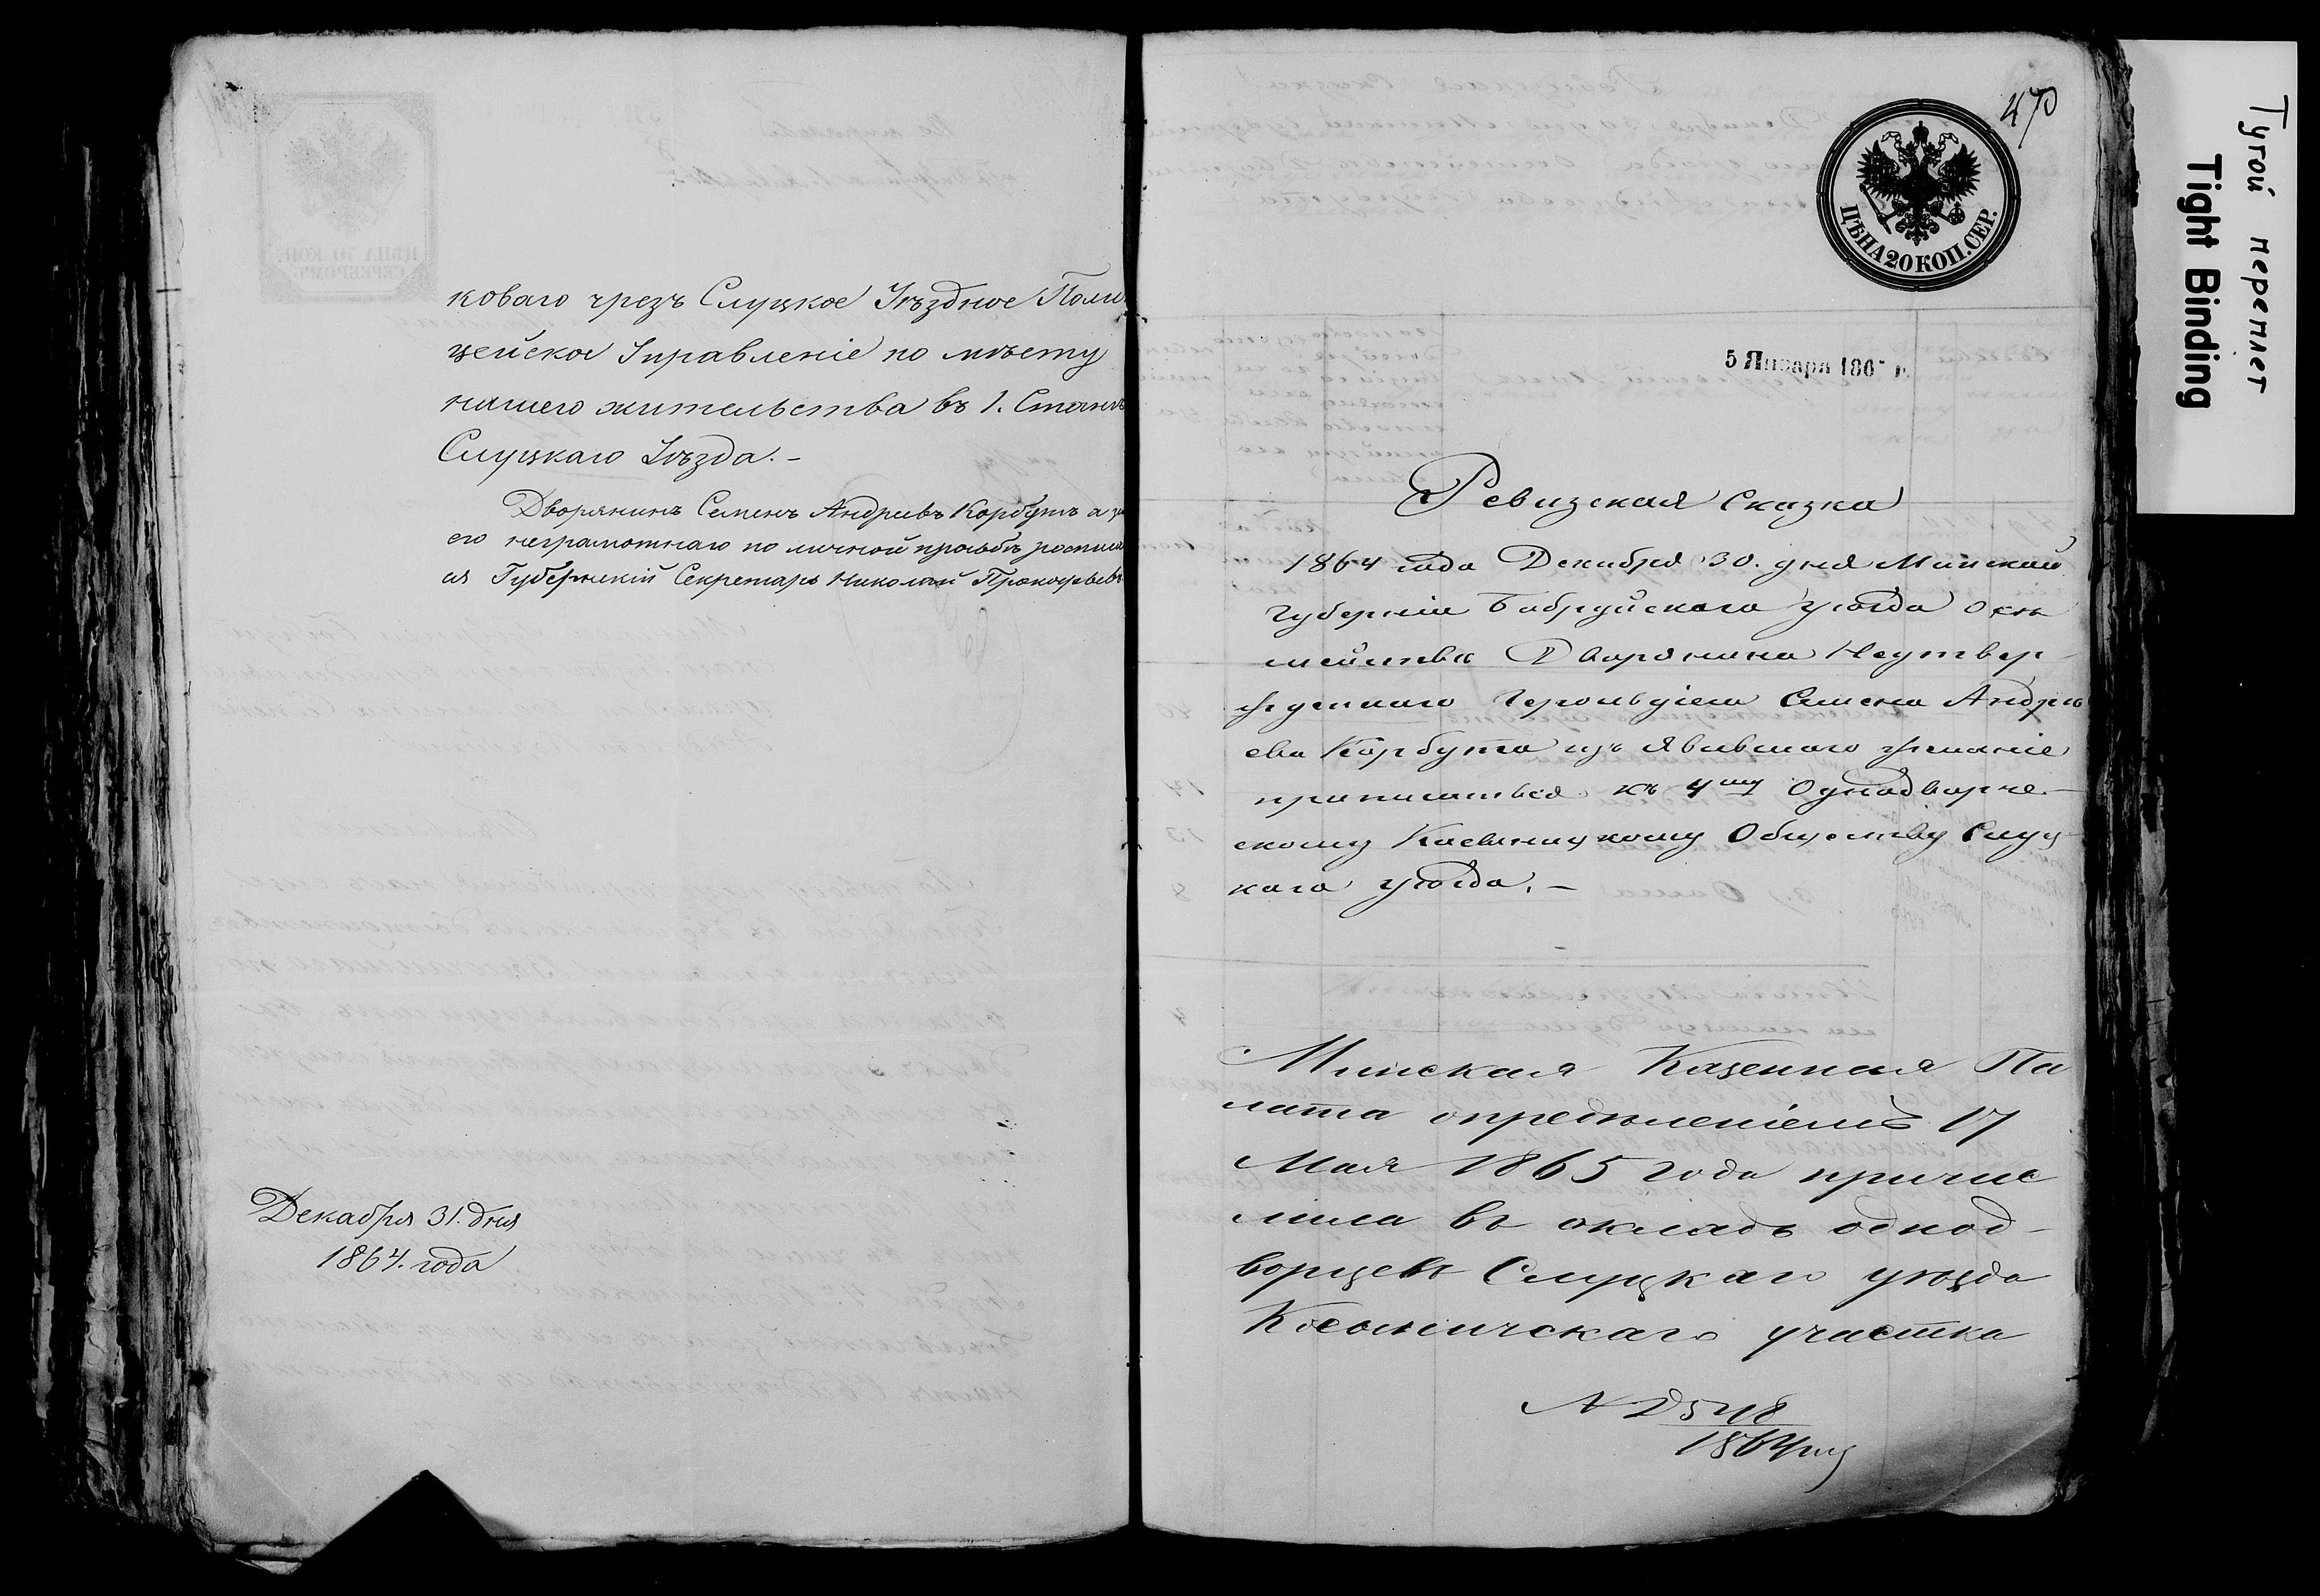 коваго чрезъ Слуцкое Уѣздное Поли
цейское Управленіе по мѣсту
нашего жительства въ 1. Станѣ
Слуцкаго Уѣзда. -
Дворянинъ Семенъ Андреевъ Корбутъ а за
его неграмотнаго по личной просьбѣ росписал
ся Губернскій Секретарь Николай Прокофьевъ
Декабря 31. дня
1864. года
470
ЦѢНА 20 КОП. СЕР.
5 Января 186
Ревизская Сказка
1864 года Декабря 30. дня Минской
губерніи Бобруйскаго уѣзда о се
мействѣ Дворянина Неутвер
жденнаго Герольдіею Семена Андре
ева Корбута изъявившаго желаніе
приписаться къ 4му Однодворче-
скому Обществу Слуц
каго уѣзда. -
Минская Казенная Па
лата опредѣленіемъ 17
Мая 1865 года причис
лила въ окладъ однод-
ворцевъ Слуцкаго уѣзда
участка
1864
Тугой переплет
Tight Binding